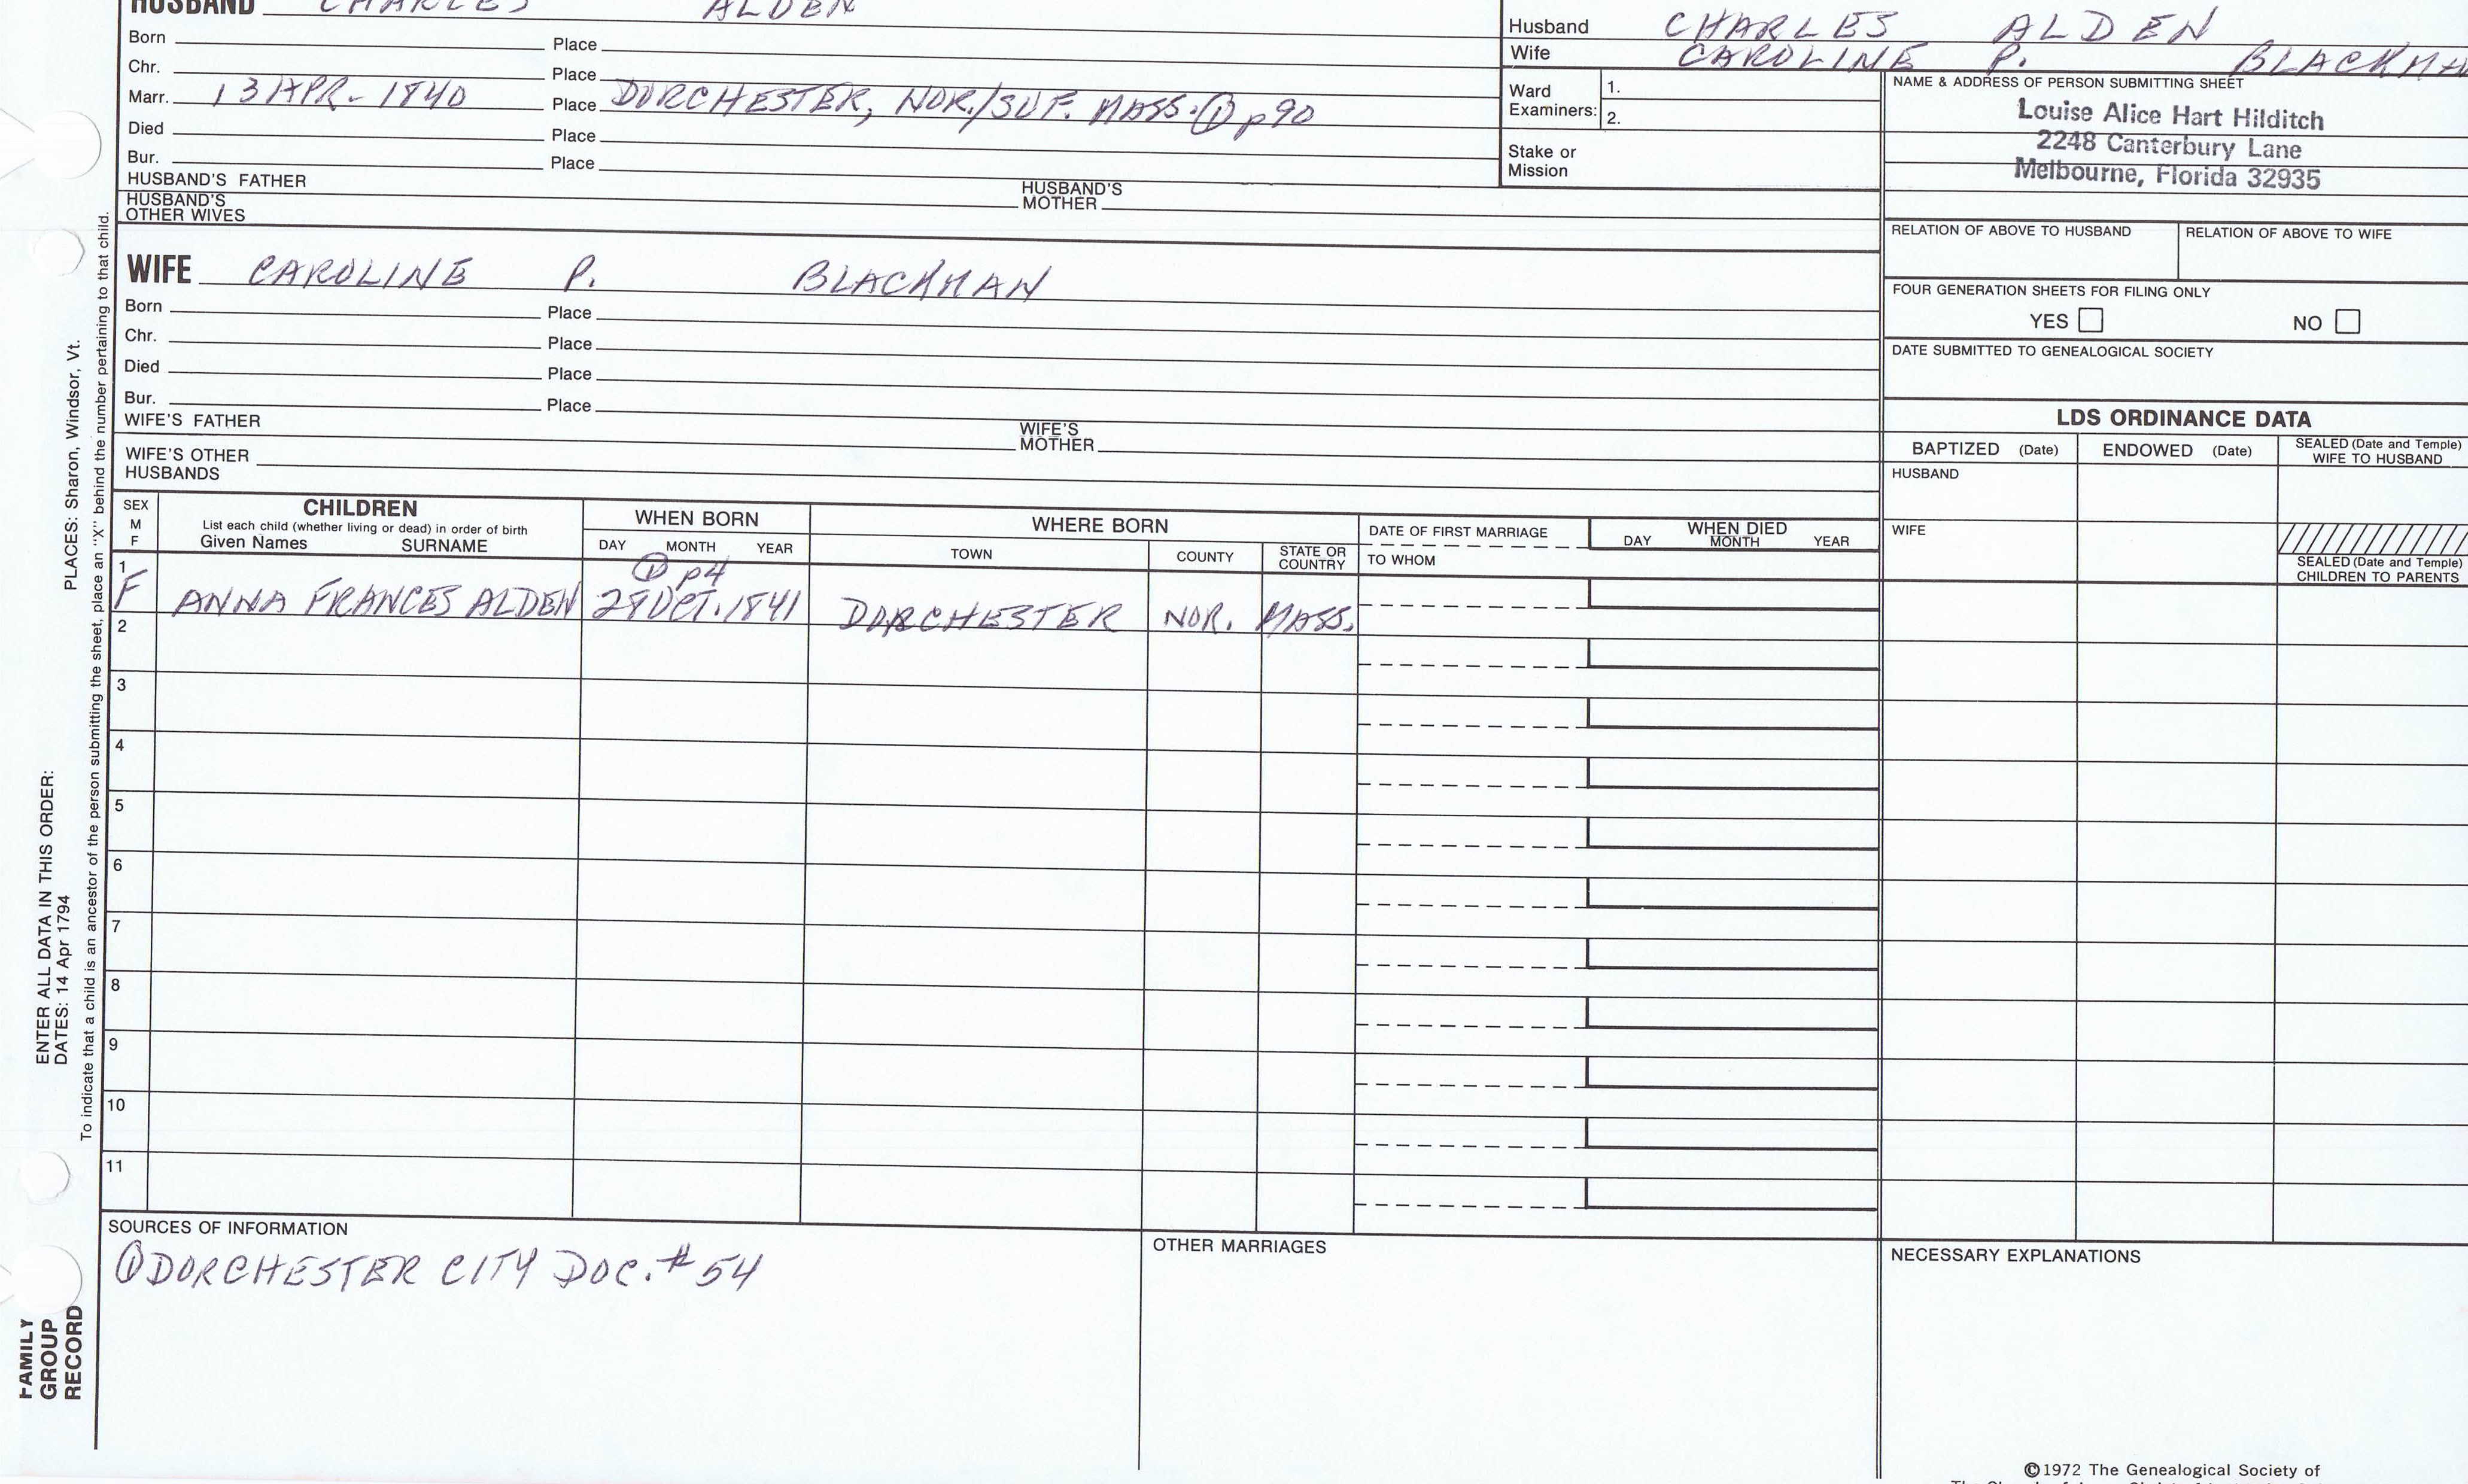 HUSBAND CHARLES ALDEN
Born Place
Chr. Place
Marr. 13 APR. 1840 Place DORCHESTER, NOR./SUF. MASS. ① p90
Died Place
Bur. Place
HUSBAND'S FATHER HUSBAND'S MOTHER
HUSBAND'S OTHER WIVES
Husband CHARLES ALDEN
Wife CAROLINE P. BLACKMA
Ward Examiners: 1.
2.
Stake or Mission
NAME & ADDRESS OF PERSON SUBMITTING SHEET
Louise Alice Hart Hilditch
2248 Canterbury Lane
Melbourne, Florida 32935
RELATION OF ABOVE TO HUSBAND RELATION OF ABOVE TO WIFE
FOUR GENERATION SHEETS FOR FILING ONLY
YES NO
DATE SUBMITTED TO GENEALOGICAL SOCIETY
WIFE CAROLINE P. BLACKMAN
Born Place
Chr. Place
Died Place
Bur. Place
WIFE'S FATHER WIFE'S MOTHER
WIFE'S OTHER HUSBANDS
LDS ORDINANCE DATA
BAPTIZED (Date) ENDOWED (Date) SEALED (Date and Temple) WIFE TO HUSBAND
HUSBAND
WIFE
SEALED (Date and Temple) CHILDREN TO PARENTS
SEX M F
CHILDREN
List each child (whether living or dead) in order of birth
Given Names SURNAME
WHEN BORN
DAY MONTH YEAR
WHERE BORN
TOWN COUNTY STATE OR COUNTRY
DATE OF FIRST MARRIAGE
TO WHOM
WHEN DIED
DAY MONTH YEAR
① p4
1 F ANNA FRANCES ALDEN OCT. 1841 DORCHESTER NOR. MASS.
2
3
4
5
6
7
8
9
10
11
SOURCES OF INFORMATION
① DORCHESTER CITY DOC. # 54
OTHER MARRIAGES
NECESSARY EXPLANATIONS
©1972 The Genealogical Society of
PLACES: Sharon, Windsor, Vt.
To indicate that a child is an ancestor of the person submitting the sheet, place an "X" behind the number pertaining to that child.
ENTER ALL DATA IN THIS ORDER:
DATES: 14 Apr 1794
FAMILY
GROUP
RECORD